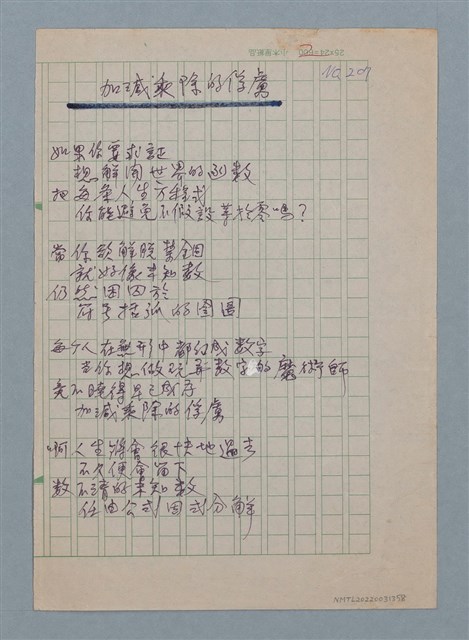 No 207
加減乘除的俘虜
如果你要求証
想解開世界的函數
把每条人生方程式
你能避免不做設等於零嗎？
當你欲解脫禁錮
就好像未知數
仍然困囚於
符号括弧的圈圈
每个人在無形中都幻成数字
当你想做玩弄数字的魔術師
竟不曉得早已成為
加減乘除的俘虜
啊人生將會很快地過去
不久便會留下
数不清的未知数
任由公式因式分解
NMTL20220031358